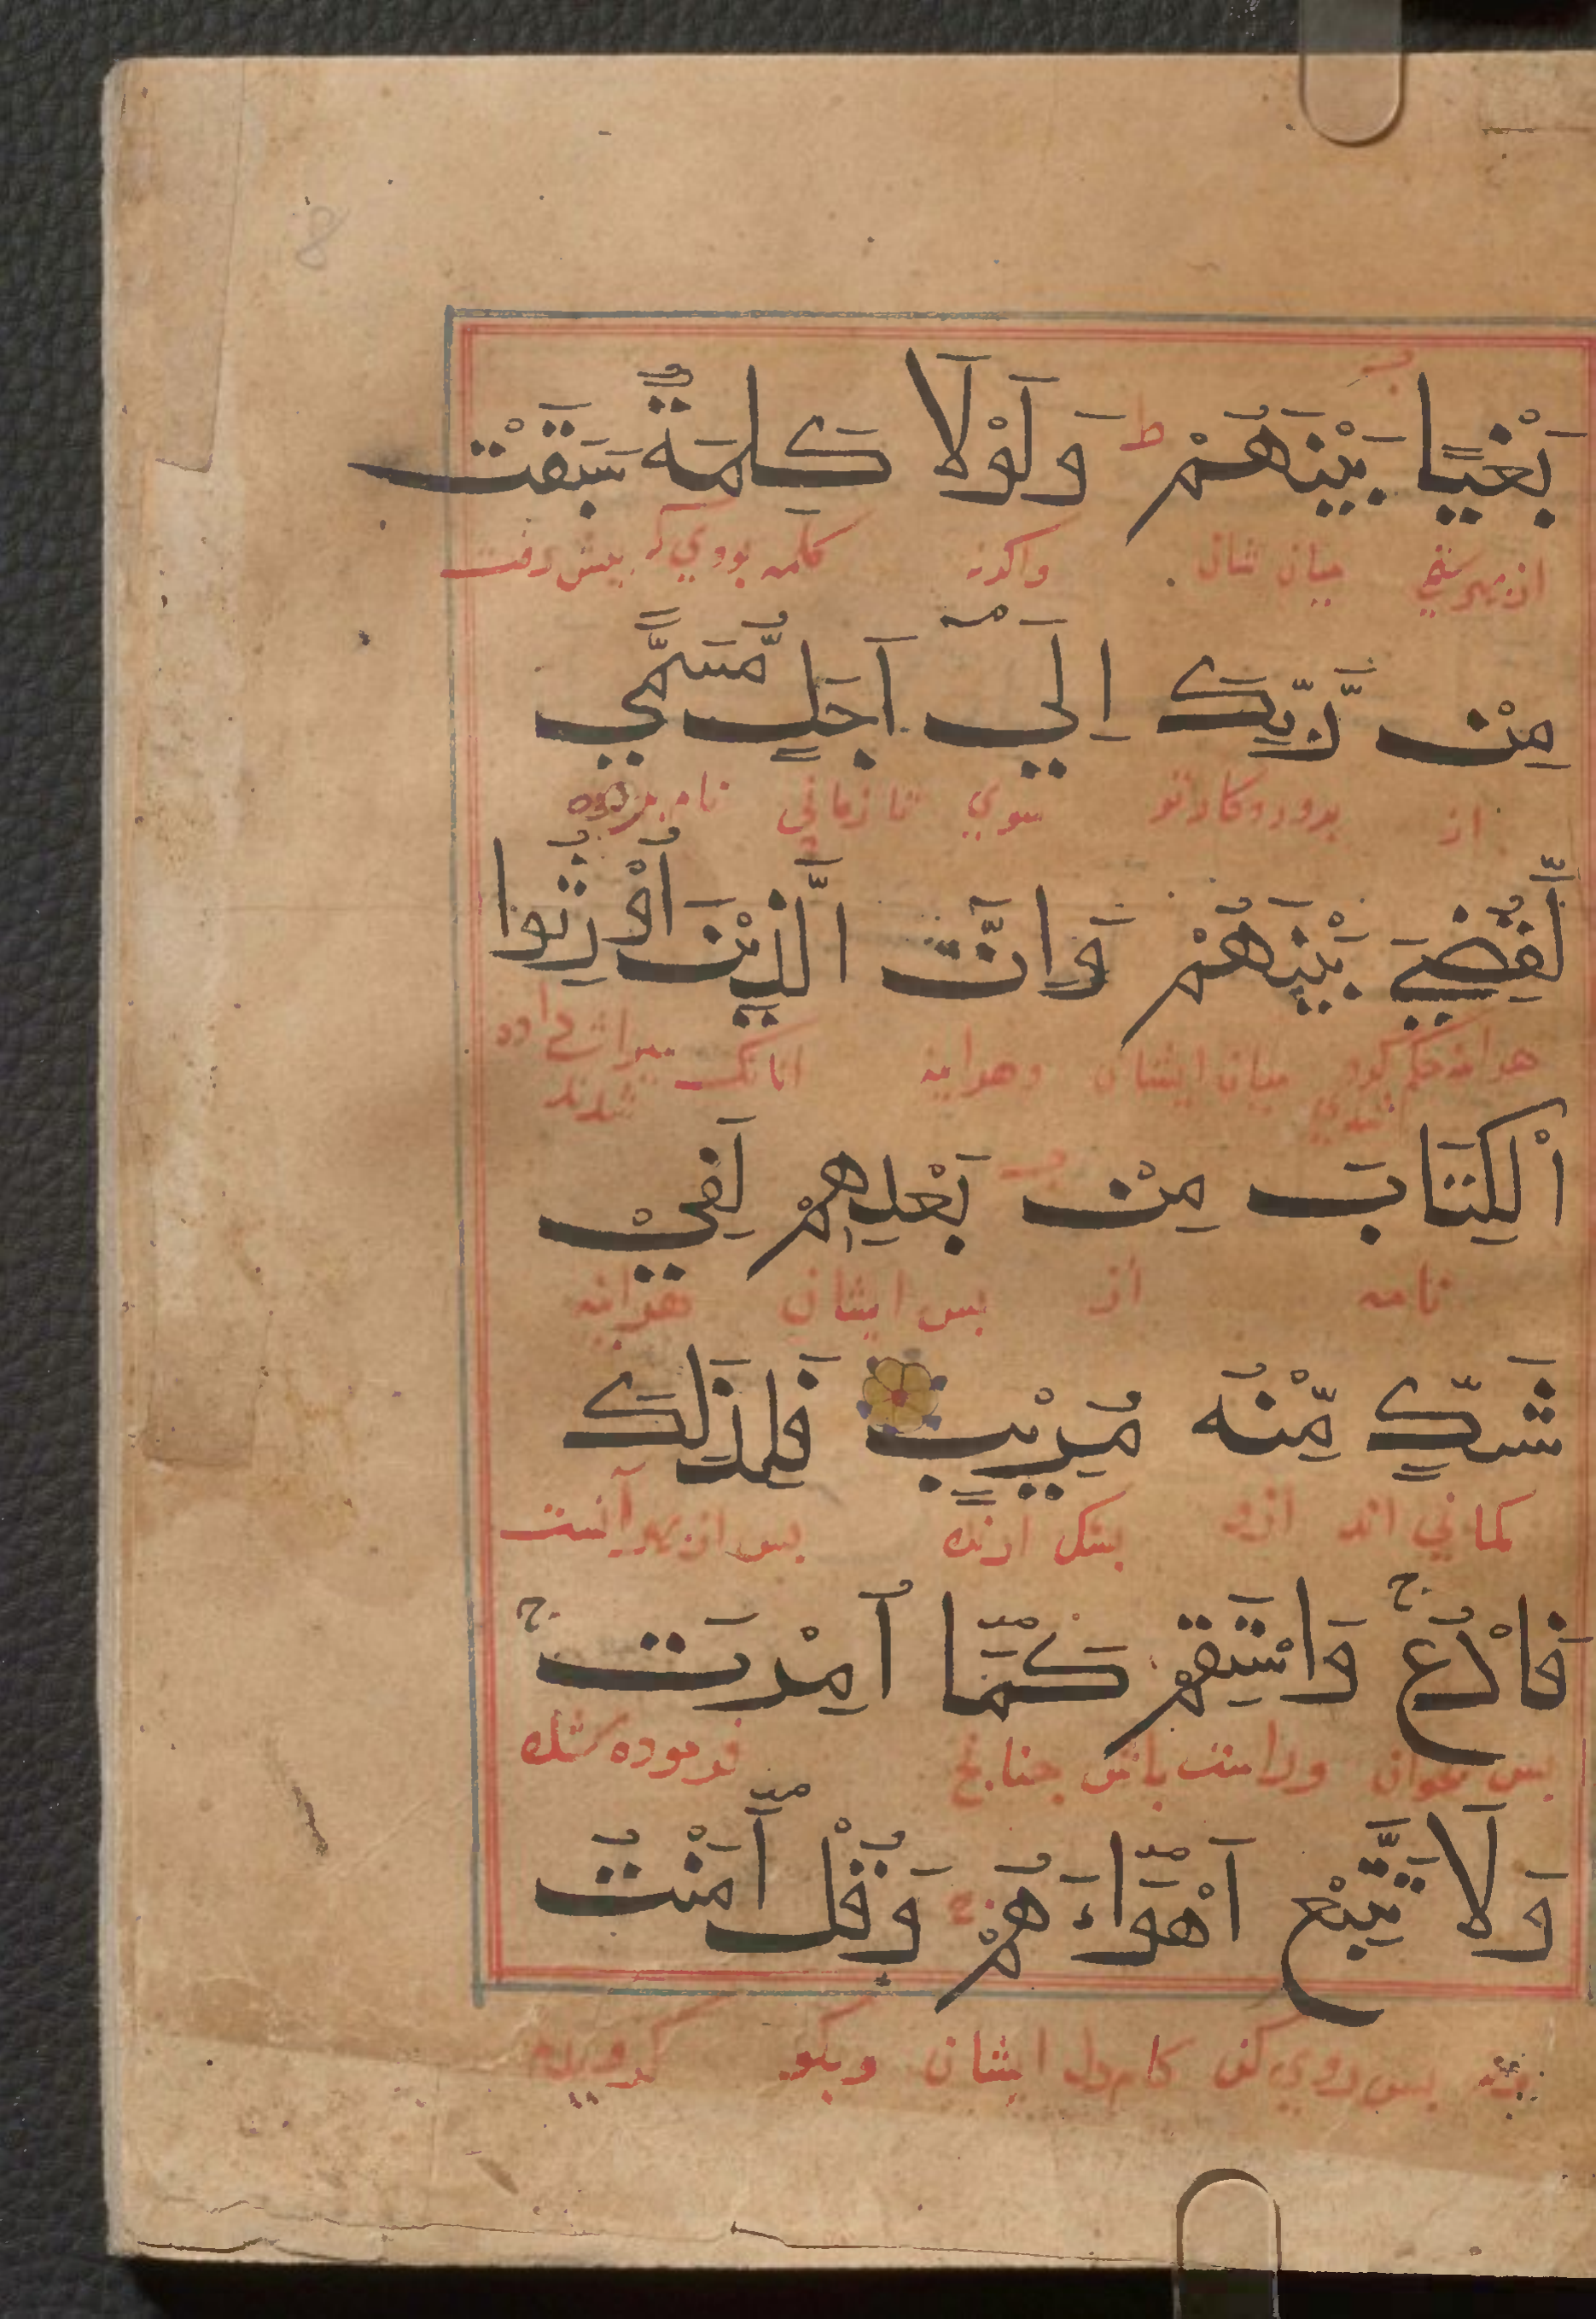 8
بَغْيًا بَيْنَهُمْ ط وَلَوْلَا كَلِمَةٌ سَبَقَتْ
از بهر میان شان واکرنه کلمه بودي که بیش رفت
مِنْ رَّبِّكَ اِلَيٰٓ اَجَلٍ مُّسَمًّي
از برورد کار تو سوي تا زماني نام برده
لَّقُضِيَ بَيْنَهُمْ وَاِنَّ الَّذِيْنَ اُوْرِثُوا
هراینه حکم کرده شدي میان ایشان وهراینه انانک میراث داده شدند
اْلكِتَابَ مِنْ بَعْدِهِمْ لَفِيْ
نامه از بس ایشان هراینه
شَكٍّ مِّنْهُ مُرِيْبٍ فَلِذَلِكَ
کماني اند ازو بشک ارنده بس از بهر آنست
فَادْعُ ج وَاسْتَقِمْ كَمَآ اُمِرْتَ ج
بس بخوان وراست باش جنانج فرموده شده
وَلَا تَتَّبِعْ اَهْوَآءَهُمْ وَقُلْ اٰمَنْتُ
بس روي مکن کام دل ایشان وبکو کرویدم